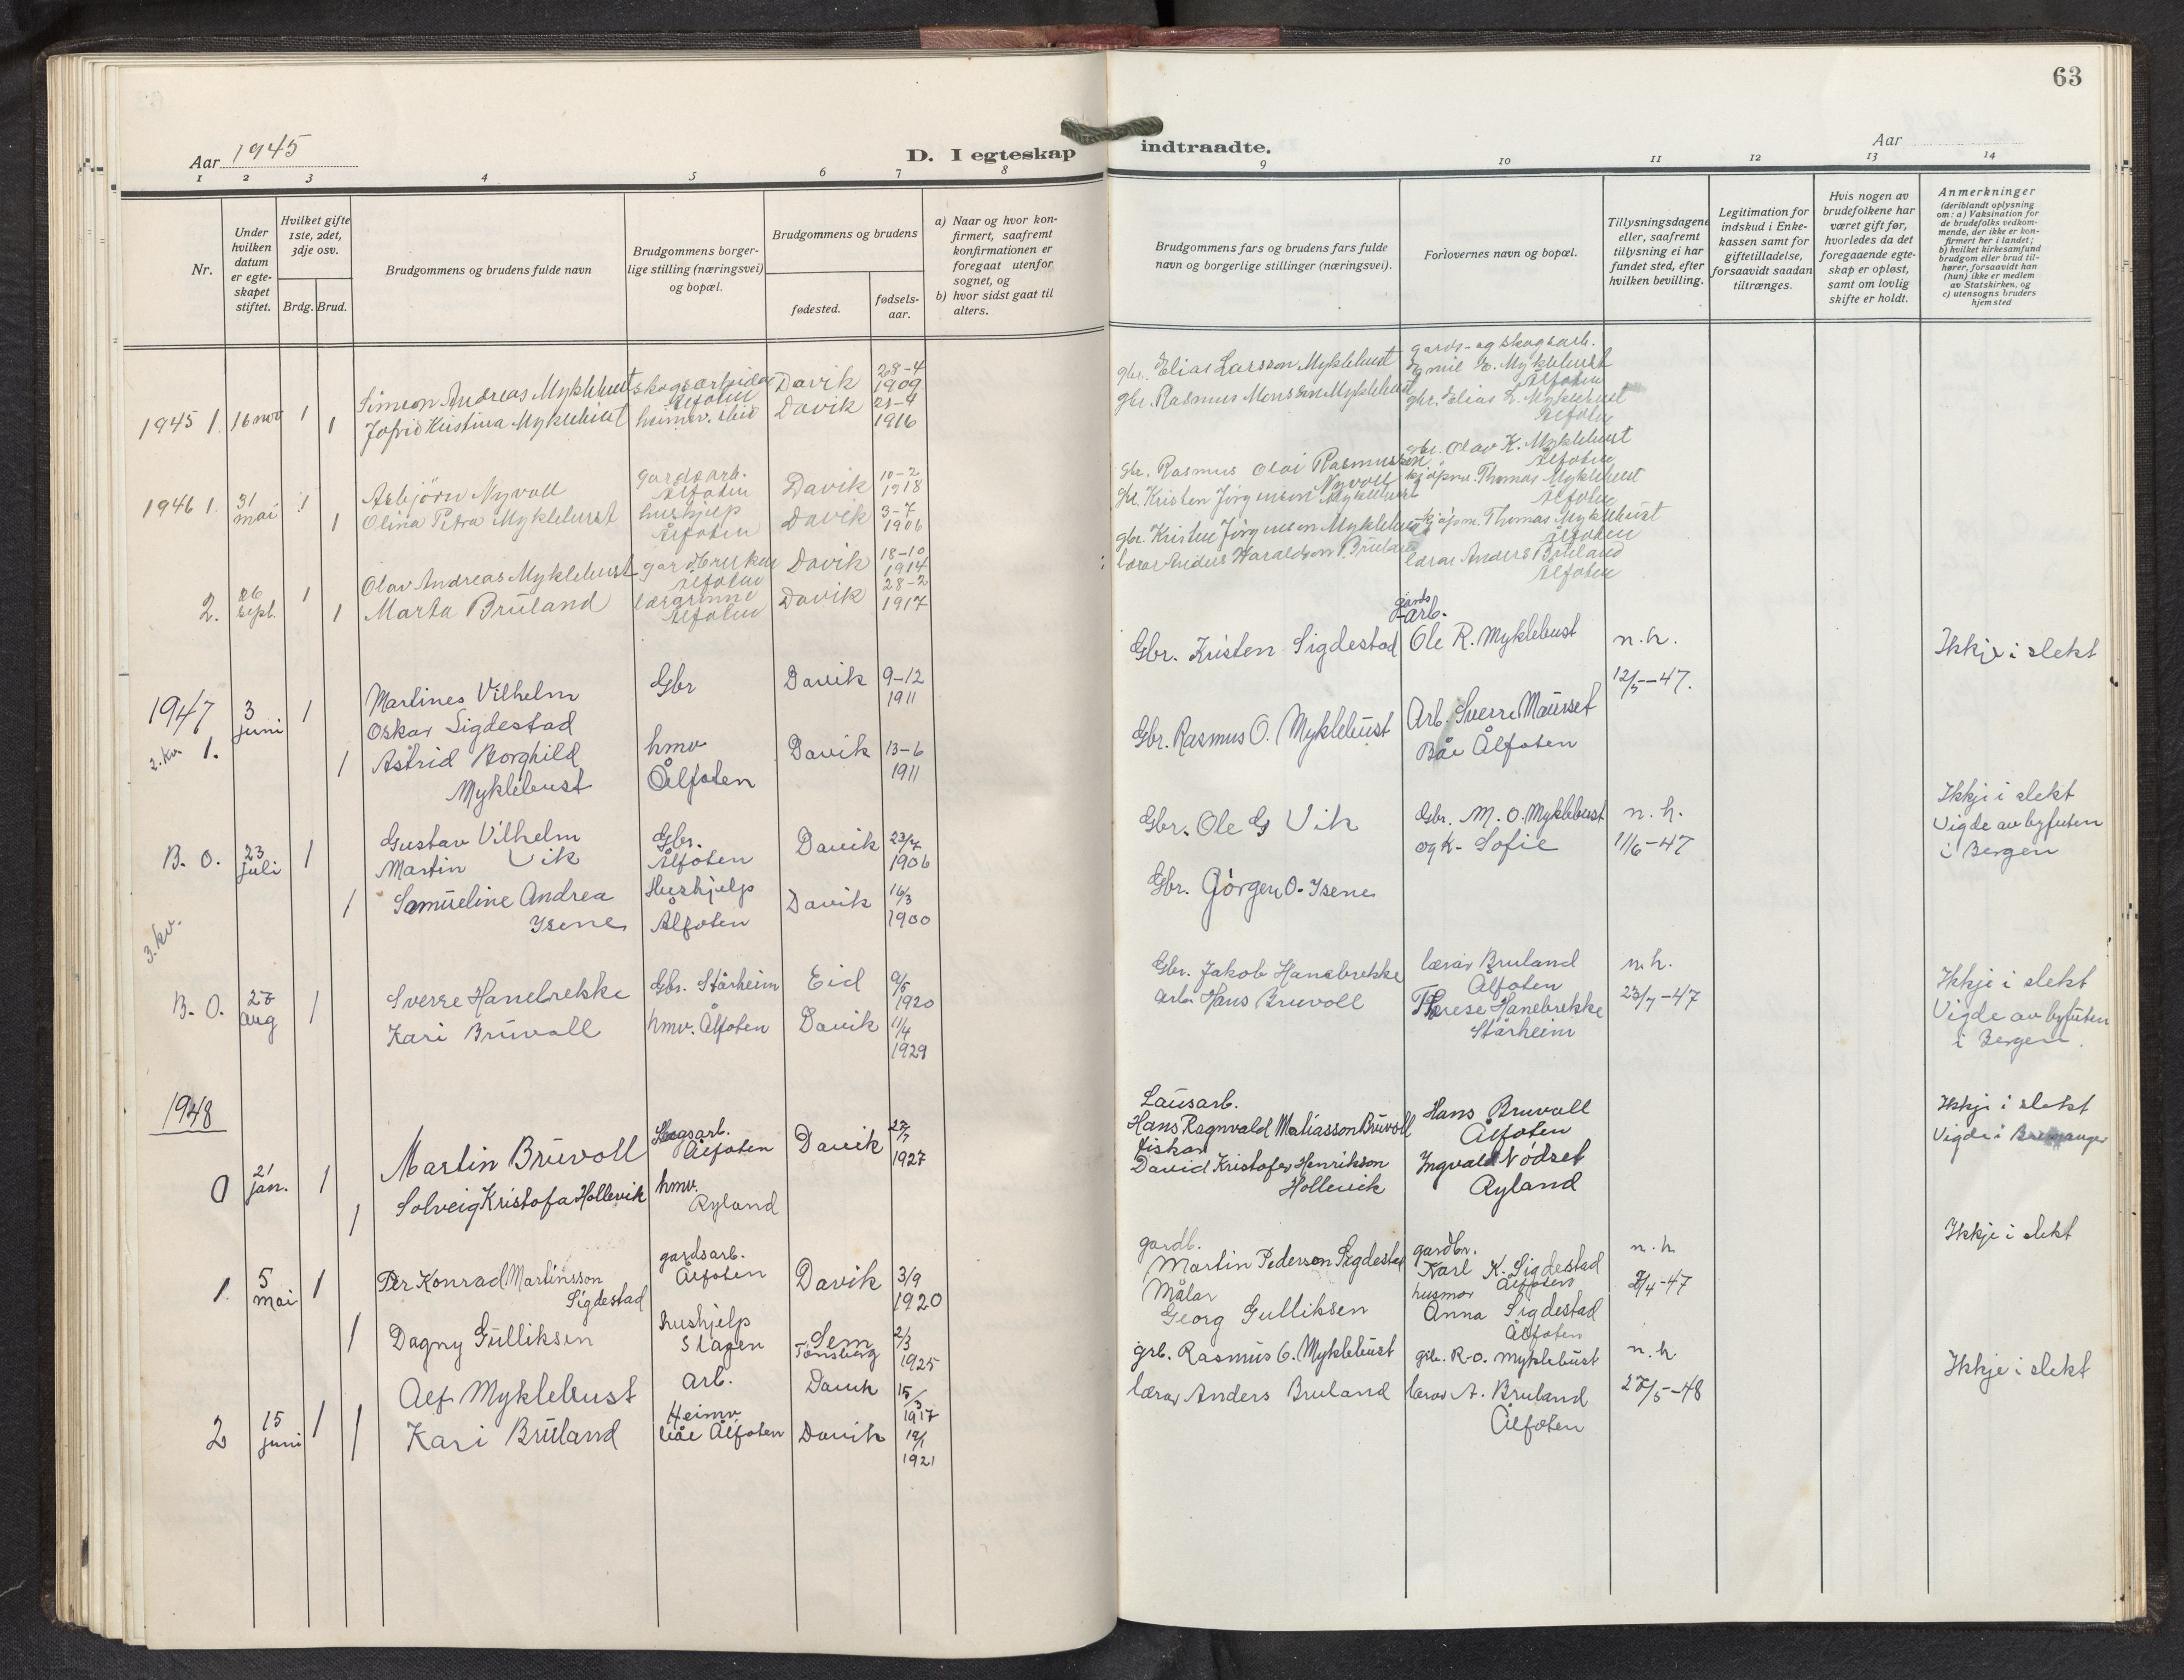 63
Aar 1945
D. I egteskap
indtraadte.
Aar
1 2 3 4 5 6 7 8
9 10 11 12 13 14
Nr.
Under hvilken datum er egteskapet stiftet.
Hvilket gifte 1ste, 2det, 3dje osv.
Brdg. Brud.
Brudgommens og brudens fulde navn
Brudgommens borgerlige stilling (næringsvei) og bopæl.
Brudgommens og brudens
fødested.
fødselsaar.
a) Naar og hvor konfirmert, saafremt konfirmationen er foregaat utenfor sognet, og
b) hvor sidst gaat til alters.
Brudgommens fars og brudens fars fulde navn og borgerlige stillinger (næringsvei).
Forlovernes navn og bopæl.
Tillysningsdagene eller, saafremt tillysning ei har fundet sted, efter hvilken bevilling.
Legitimation for indskud i Enkekassen samt for giftetilladelse, forsaavidt saadan tiltrænges.
Hvis nogen av brudefolkene har været gift før, hvorledes da det foregaaende egteskap er opløst, samt om lovlig skifte er holdt.
Anmerkninger
(deriblandt oplysning om: a) Vaksination for de brudefolks vedkommende, der ikke er konfirmert her i landet; b) hvilket kirkesamfund brudgom eller brud tilhører, forsaavidt han (hun) ikke er medlem av Statskirken, og c) utensogns bruders hjemsted
1945 1. 16 nov 1 Simeon Andreas Myklebust skogsarbeidar Ålfoten Davik 28-4 1909
1 Jofrid Kristina Myklebust Davik 1916
gbr. Elias Larsson Myklebust
gbr. Rasmus Monssen Myklebust
gards- og skogsarb.
Emil E. Myklebust
Ålfoten
gbr. Elias L. Myklebust
Ålfoten
1946 1. 31 mai 1 Asbjörn Nyvoll gardsarb. Ålfoten Davik 10-2 1918
1 Olina Petra Myklebust hushjelp Ålfoten Davik 3-7 1906
gbr. Rasmus Olai Rasmussen Nyvoll
gbr. Kristen Jörgenson Myklebust
gbr. Olav K. Myklebust
Ålfoten
kjöpm. Thomas Myklebust
Ålfoten
2. 26 sept. 1 Olav Andreas Myklebust gardbrukar Ålfoten Davik 18-10 1914
1 Marta Bruland lærarinne Ålfoten Davik 28-2 1917
gbr. Kristen Jörgenson Myklebust
lærar Anders Haraldson Bruland
kjöpm. Thomas Myklebust
Ålfoten
lærar Anders Bruland
Ålfoten
1947
2. kv. 1. 3 juni 1 Martines Vilhelm Oskar Sigdestad Gbr Davik 9-12 1911
1 Astrid Borghild Myklebust hmv Ålfoten Davik 13-6 1911
Gbr. Kristen Sigdestad
Gbr. Rasmus O. Myklebust
gards-arb.
Ole R. Myklebust
Arb. Sverre Maurset
Båe Ålfoten
n. h.
12/5-47.
Ikkje i slekt
3. kv.
B. O. 23 juli 1 Gustav Vilhelm Martin Vik Gbr. Ålfoten Davik 23/7 1906
1 Samueline Andrea Isene Hushjelp Ålfoten Davik 16/3 1900
Gbr. Ole G Vik
Gbr. Jörgen O. Isene
Gbr. M. O. Myklebust
og k. Sofie
n. h.
11/6-47
Ikkje i slekt
Vigde av byfuten
i Bergen
B. O. aug 1 Sverre Hanebrekke Gbr. Stårheim Eid 1920
Kari Bruvoll hmv. Ålfoten Davik 11/4 1929
Gbr. Jakob Hanebrekke
arb. Hans Bruvoll
lærar Bruland
Ålfoten
Therese Hanebrekke
Stårheim
n. h.
23/7-47
Ikkje i slekt
Vigde av byfuten
i Bergen.
1948
0 21 jan. 1 Martin Bruvoll Skogsarb. Ålfoten Davik 1927
1 Solveig Kristofa Hollevik hmv. Ryland
Lausarb.
Hans Ragnvald Matiasson Bruvoll
Fiskar
David Kristofer Henrikson
Hollevik
Hans Bruvoll
Ålfoten
Ingvald Nödset
Ryland
Ikkje i slekt
Vigde i Bremanger
1. 5 mai 1 Per Konrad Martinsson Sigdestad gardsarb. Ålfoten Davik 3/9 1920
1 Dagny Gulliksen hushjelp Slagen Sem Tønsberg 2/3 1925
gardb.
Martin Pederson Sigdestad
Målar
Georg Gulliksen
gardbr.
Karl K. Sigdestad
Ålfoten
husmor
Anna Sigdestad
Ålfoten
n. h
2/4-47
Ikkje i slekt
2 15 juni 1 Alf Myklebust arb. Davik 15/3 1917
1 Kari Bruland Heimv. Båe Ålfoten Davik 1921
grb. Rasmus O. Myklebust
lærar Anders Bruland
grb. R. O. Myklebust
lærar A. Bruland
Ålfoten
n. h
27/5-48
Ikkje i slekt